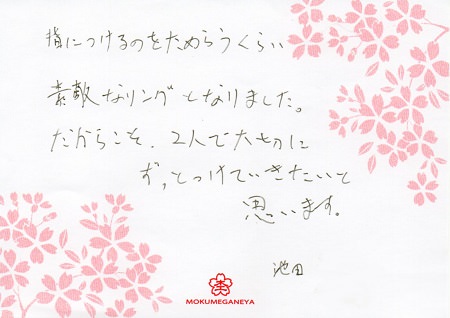 指につけるのをためらうくらい
素敵なリングとなりました。
だからこそ、2人で大切に
ずっとつけていきたいと
思います。
池田
MOKUMEGANEYA